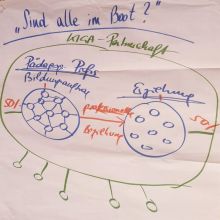 „Sind alle im Boot?"
KIGA - Partnerschaft
Pädagog. Profis
Bildungsauftrag
Erziehung
SOI
professionelle
Beziehung
SOI